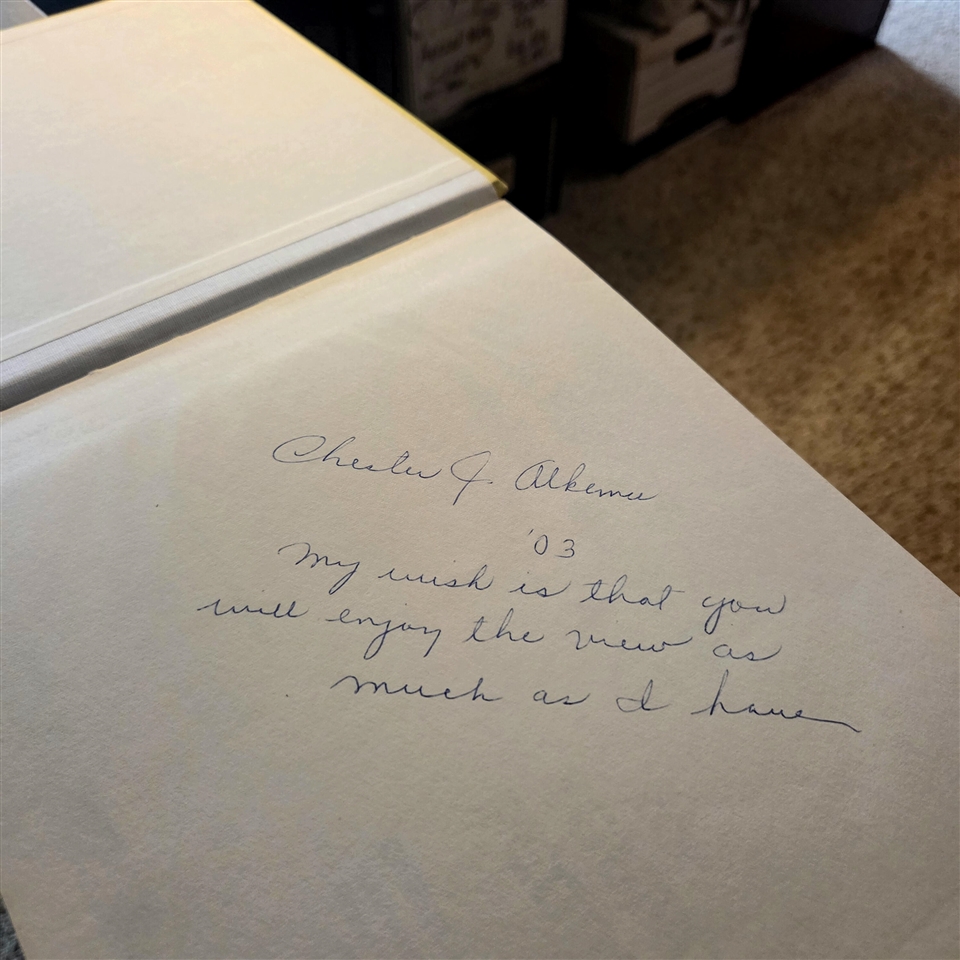 Chester J. Alkema
'03
My wish is that you
will enjoy the view as
much as I have